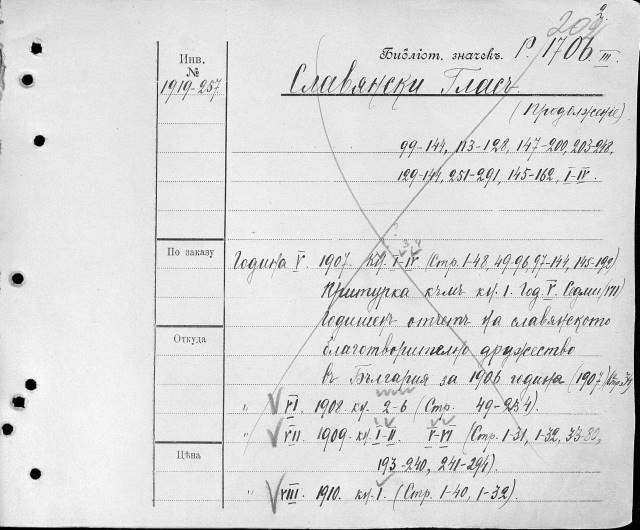 209 2.
Инв. №
Библіот. значекъ Р. 1706 III.
1919-257.
Славянски Гласъ
(Продолженіе)
99-144, 113-128, 147-200, 203-248,
129-144, 251-291, 145-162, I-IV.
3, 4
По заказу
Година V. 1907. кн. I-IV (Стр. 1-48, 49-96, 97-144, 145-192)
Притурка къмъ кн. 1. Год. V. Седми (VII)
годишенъ отчетъ на славянското
Откуда
благотворително дружество
въ България за 1906 година (1907)
" VI. 1908. кн. 2-6 (Стр. 49-254).
" VII. 1909. кн. I-II. V-VI (Стр. 1-31, 1-32, 33-80,
Цѣна
193-240, 241-294).
" VIII. 1910. кн. 1. (Стр. 1-40, 1-32)